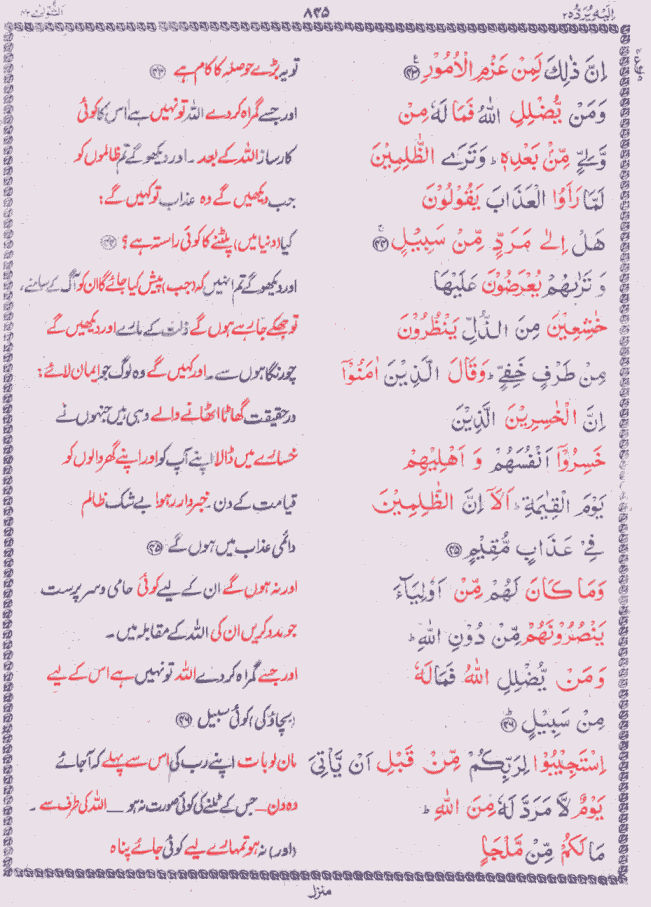 اِلَيْهِ يُرَدُّ ۲۵
۸۴۵
الشُّوْرٰى ۴۲
اِنَّ ذٰلِكَ لَمِنْ عَزْمِ الْاُمُوْرِ ۴۳
تو یہ بڑے حوصلہ کا کام ہے ۴۳
وَمَنْ يُّضْلِلِ اللهُ فَمَا لَهٗ مِنْ
اور جسے گمراہ کر دے اللہ تو نہیں ہے اس کا کوئی
وَّلِيٍّ مِّنْۢ بَعْدِهٖ ؕ وَتَرَى الظّٰلِمِيْنَ
کارساز اللہ کے بعد ۔ اور دیکھو گے تم ظالموں کو
لَمَّا رَاَوُا الْعَذَابَ يَقُوْلُوْنَ
جب دیکھیں گے وہ عذاب تو کہیں گے:
هَلْ اِلٰى مَرَدٍّ مِّنْ سَبِيْلٍ ۴۴
کیا (دنیا میں) پلٹنے کا کوئی راستہ ہے؟ ۴۴
وَ تَرٰىهُمْ يُعْرَضُوْنَ عَلَيْهَا
اور دیکھو گے تم انہیں کہ (جب) پیش کیا جائے گا ان کو آگ کے سامنے،
خٰشِعِيْنَ مِنَ الذُّلِّ يَنْظُرُوْنَ
تو جھکے جا رہے ہوں گے ذلت کے مارے اور دیکھیں گے
مِنْ طَرْفٍ خَفِيٍّ ؕ وَقَالَ الَّذِيْنَ اٰمَنُوْۤا
چور نگاہوں سے ۔ اور کہیں گے وہ لوگ جو ایمان لائے:
اِنَّ الْخٰسِرِيْنَ الَّذِيْنَ
درحقیقت گھاٹا اٹھانے والے وہی ہیں جنہوں نے
خَسِرُوْۤا اَنْفُسَهُمْ وَ اَهْلِيْهِمْ
خسارے میں ڈالا اپنے آپ کو اور اپنے گھر والوں کو
يَوْمَ الْقِيٰمَةِ ؕ اَلَاۤ اِنَّ الظّٰلِمِيْنَ
قیامت کے دن ۔ خبردار رہو! بے شک ظالم
فِيْ عَذَابٍ مُّقِيْمٍ ۴۵
دائمی عذاب میں ہوں گے ۴۵
وَمَا كَانَ لَهُمْ مِّنْ اَوْلِيَآءَ
اور نہ ہوں گے ان کے لیے کوئی حامی و سرپرست
يَنْصُرُوْنَهُمْ مِّنْ دُوْنِ اللهِ ؕ
جو مدد کریں ان کی اللہ کے مقابلہ میں ۔
وَمَنْ يُّضْلِلِ اللهُ فَمَا لَهٗ
اور جسے گمراہ کر دے اللہ تو نہیں ہے اس کے لیے
مِنْ سَبِيْلٍ ۴۶
(بچاؤ کی) کوئی سبیل ۴۶
اِسْتَجِيْبُوْا لِرَبِّكُمْ مِّنْ قَبْلِ اَنْ يَّاْتِيَ
مان لو بات اپنے رب کی اس سے پہلے کہ آ جائے
يَوْمٌ لَّا مَرَدَّ لَهٗ مِنَ اللهِ ؕ
وہ دن — جس کے ٹلنے کی کوئی صورت نہ ہو — اللہ کی طرف سے ۔
مَا لَكُمْ مِّنْ مَّلْجَاٍ
(اور) نہ ہو تمہارے لیے کوئی جائے پناہ
منزل